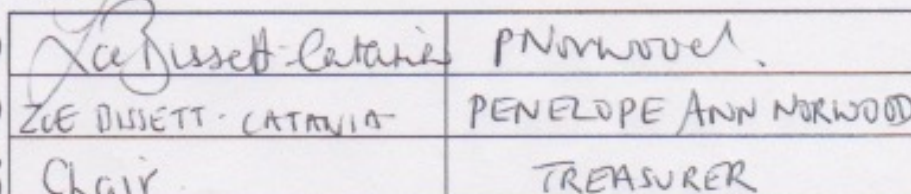 Zoe Bissett-Catania PNorwood.
ZOE BISSETT-CATANIA PENELOPE ANN NORWOOD
Chair TREASURER